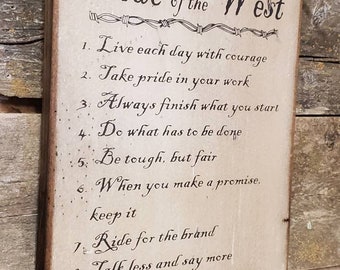 of the West
1. Live each day with courage
2. Take pride in your work
3. Always finish what you start
4. Do what has to be done
5. Be tough, but fair
6. When you make a promise,
keep it
7. Ride for the brand
8. Talk less and say more